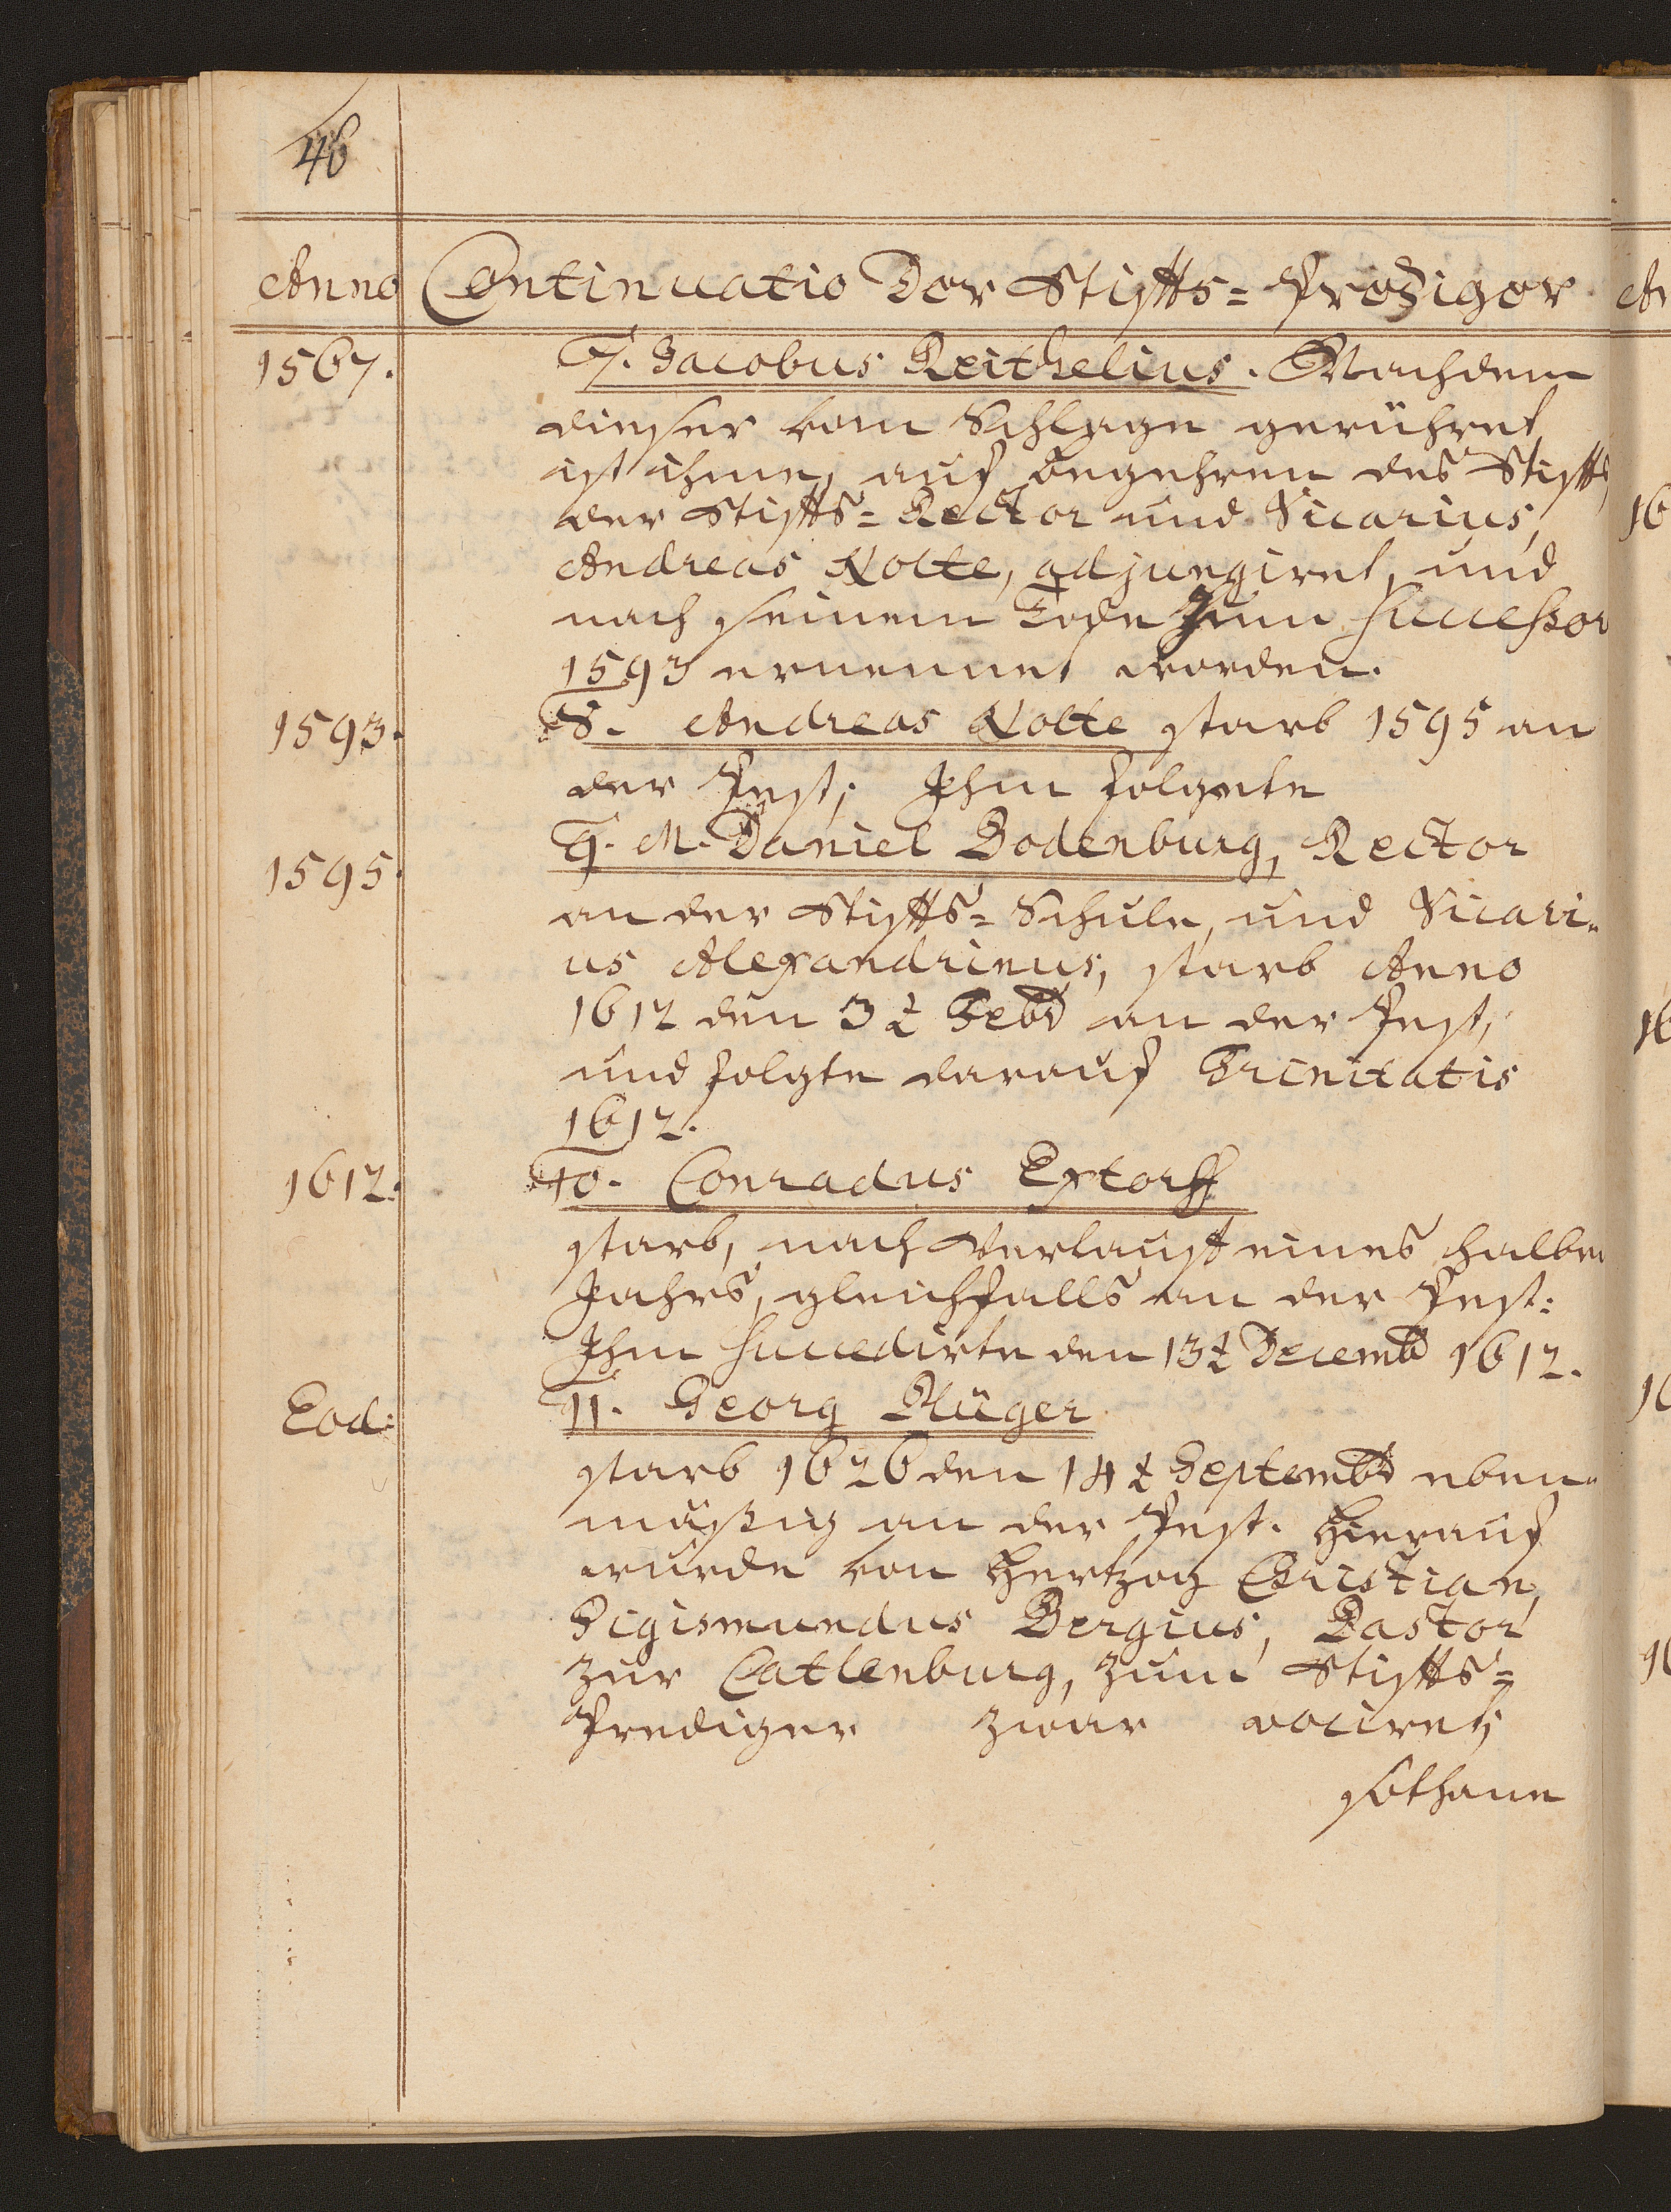 46
Anno Continuatio Der Stiffts= Prediger
1567. 7. Jacobus Reithelius. Nachdem
dieser vom Schlage gerühret,
ist ihme, auf begehren des Stiffts
der Stiffts= Rector und Vicarius,
Andreas Nolte, adjungiret, und
nach seinem Tode zum Successor
1593 ernennet worden.
1593. 8. Andreas Nolte starb 1595 an
der Pest; Ihm folgete
1595. 9. M. Daniel Bodenburg, Rector
an der Stiffts= Schule, und Vicari-
us Alexandrinus, starb Anno
1612 den 3t Febr an der Pest,
und folgte darauf Trinitatis
1612.
1612. 10. Conradus Extorff
starb, nach Verlauff eines halben
Jahrs, gleichfalls an der Pest:
Ihm succedirte den 13t Decembr 1612.
Eod: 11. Georg Rüger
starb 1626 den 14t Septembr eben-
mäßig an der Pest. Hierauf
wurde von Hertzog Christian,
Sigismundus Bergius, Pastor
zur Catlenburg, zum Stiffts=
Prediger zwar vociret;
sothane